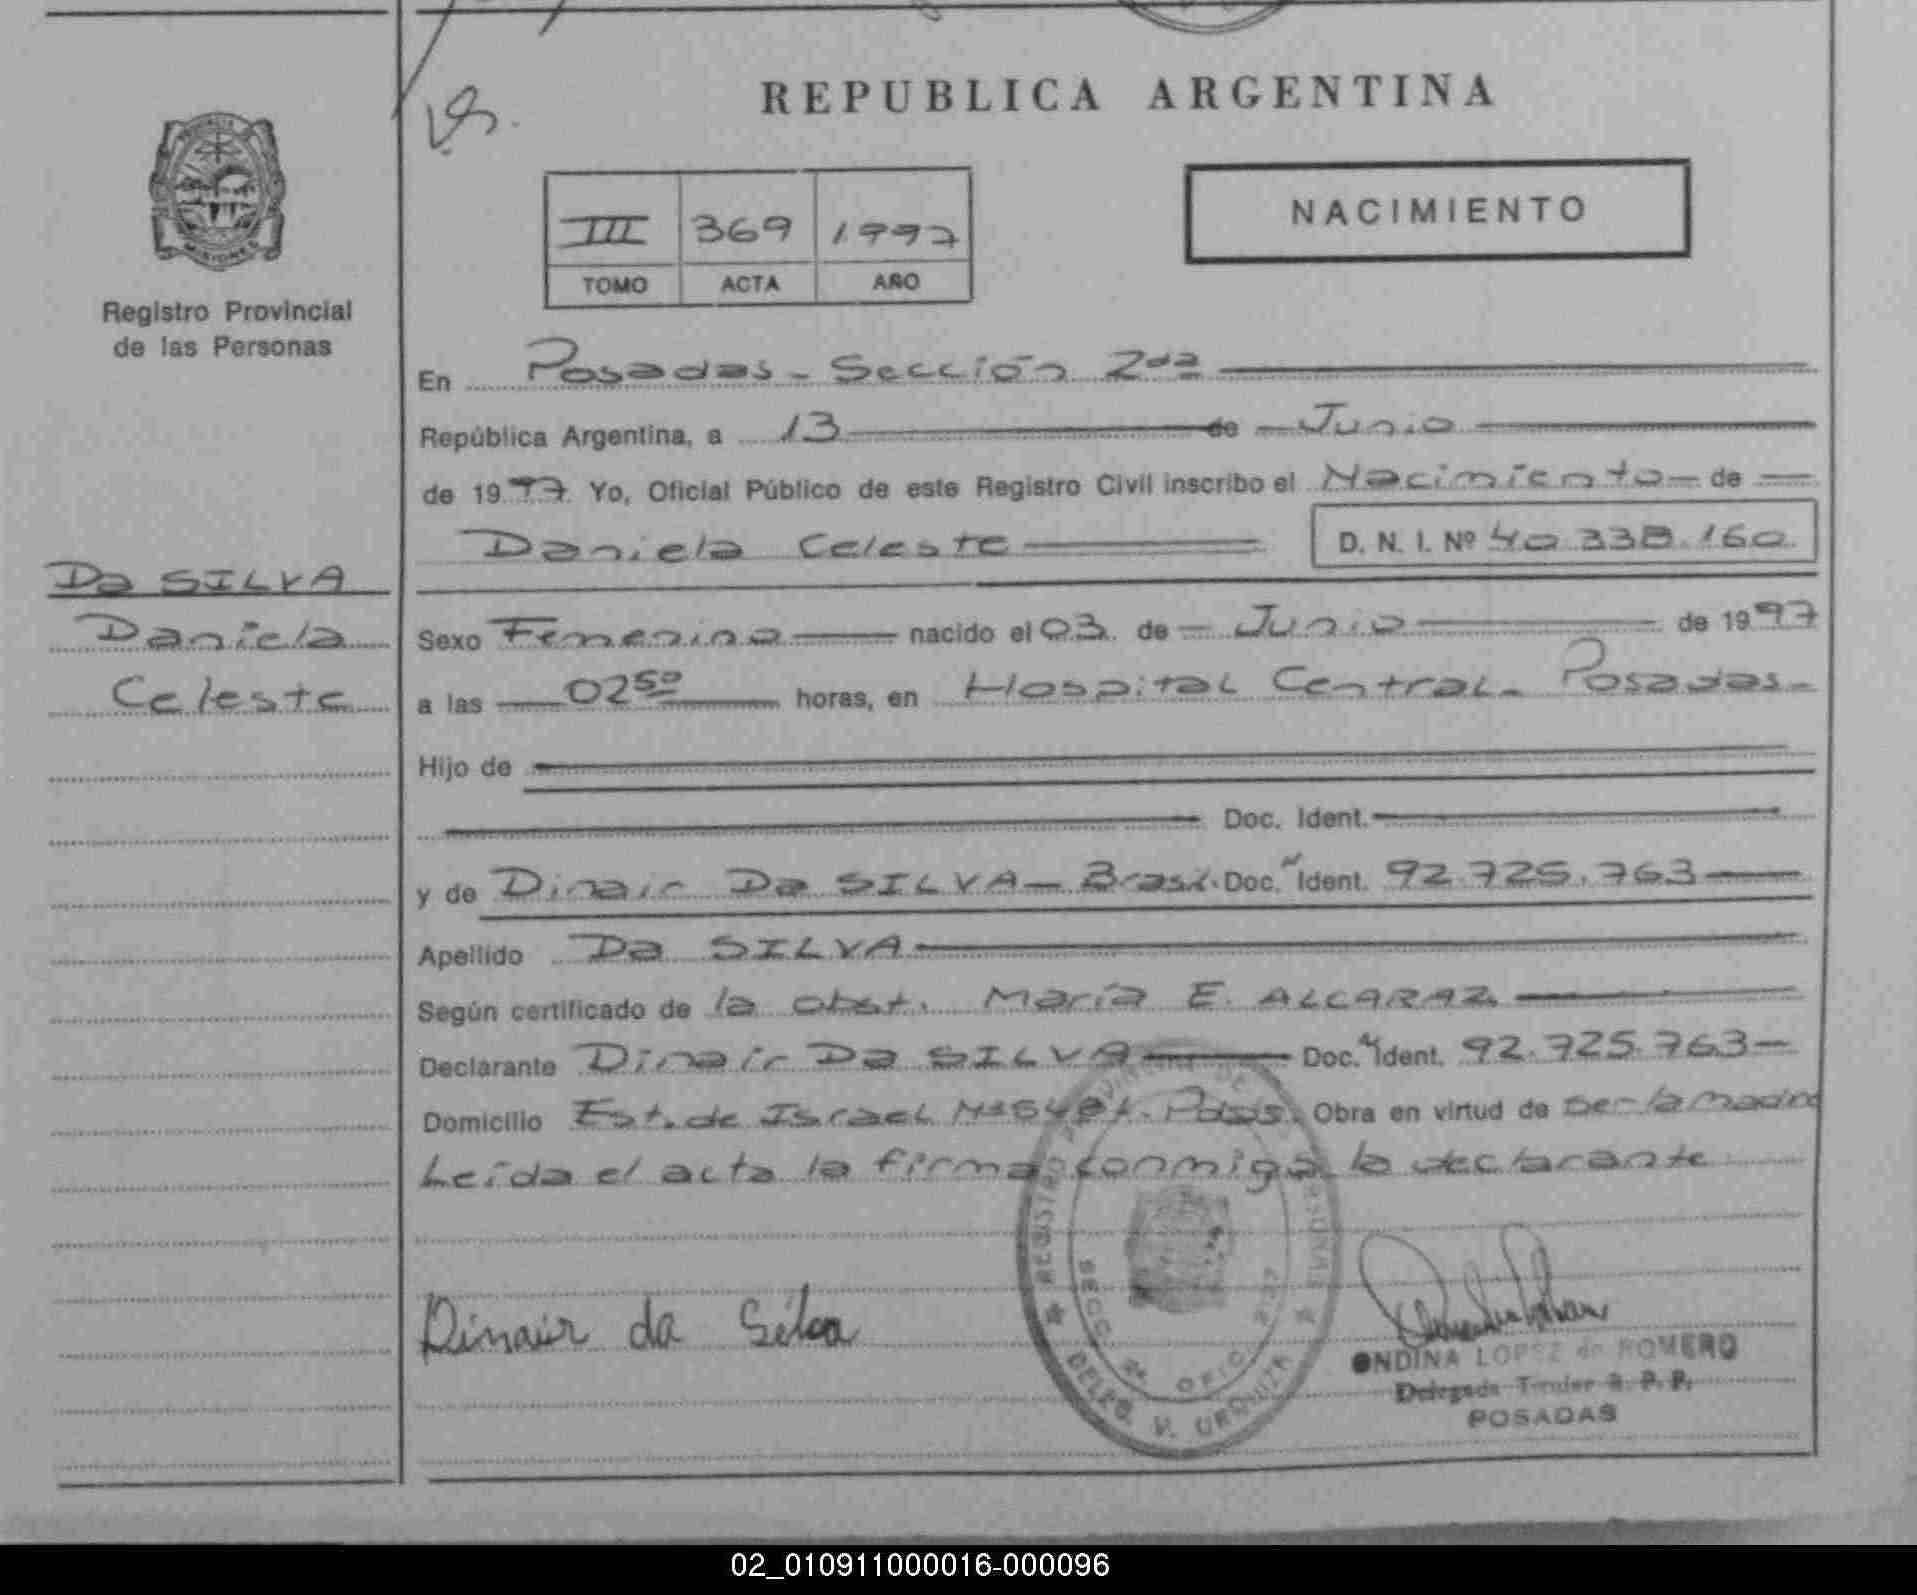 REPUBLICA ARGENTINA
NACIMIENTO
III 369 1997
TOMO ACTA AÑO
PROVINCIA
MISIONES
Registro Provincial
de las Personas
En Posadas - Sección 2da
República Argentina, a 13 de Junio
de 1997 Yo, Oficial Público de este Registro Civil inscribo el Nacimiento de
Daniela Celeste D. N. I. Nº 40.338.160
Da SILVA
Daniela
Celeste
Sexo Femenino nacido el 03 de Junio de 1997
a las 02 50 horas, en Hospital Central - Posadas -
Hijo de
Doc. Ident.
y de Dinair Da SILVA - Brasil. Doc. Ident. 92.725.763
Apellido Da SILVA
Según certificado de la obst. María E. ALCARAZ
Declarante Dinair Da SILVA Doc. Ident. 92.725.763 -
Domicilio Est. de Israel Obra en virtud de ser la madre
Leída el acta la firma conmigo la declarante
Dinair da Silva
REGISTRO PROVINCIAL DE LAS PERSONAS
SECC. 2a OFIC.
DELEG. V. URQUIZA
ONDINA LOPEZ de ROMERO
Delegada Titular R. P. P.
POSADAS
02_010911000016-000096